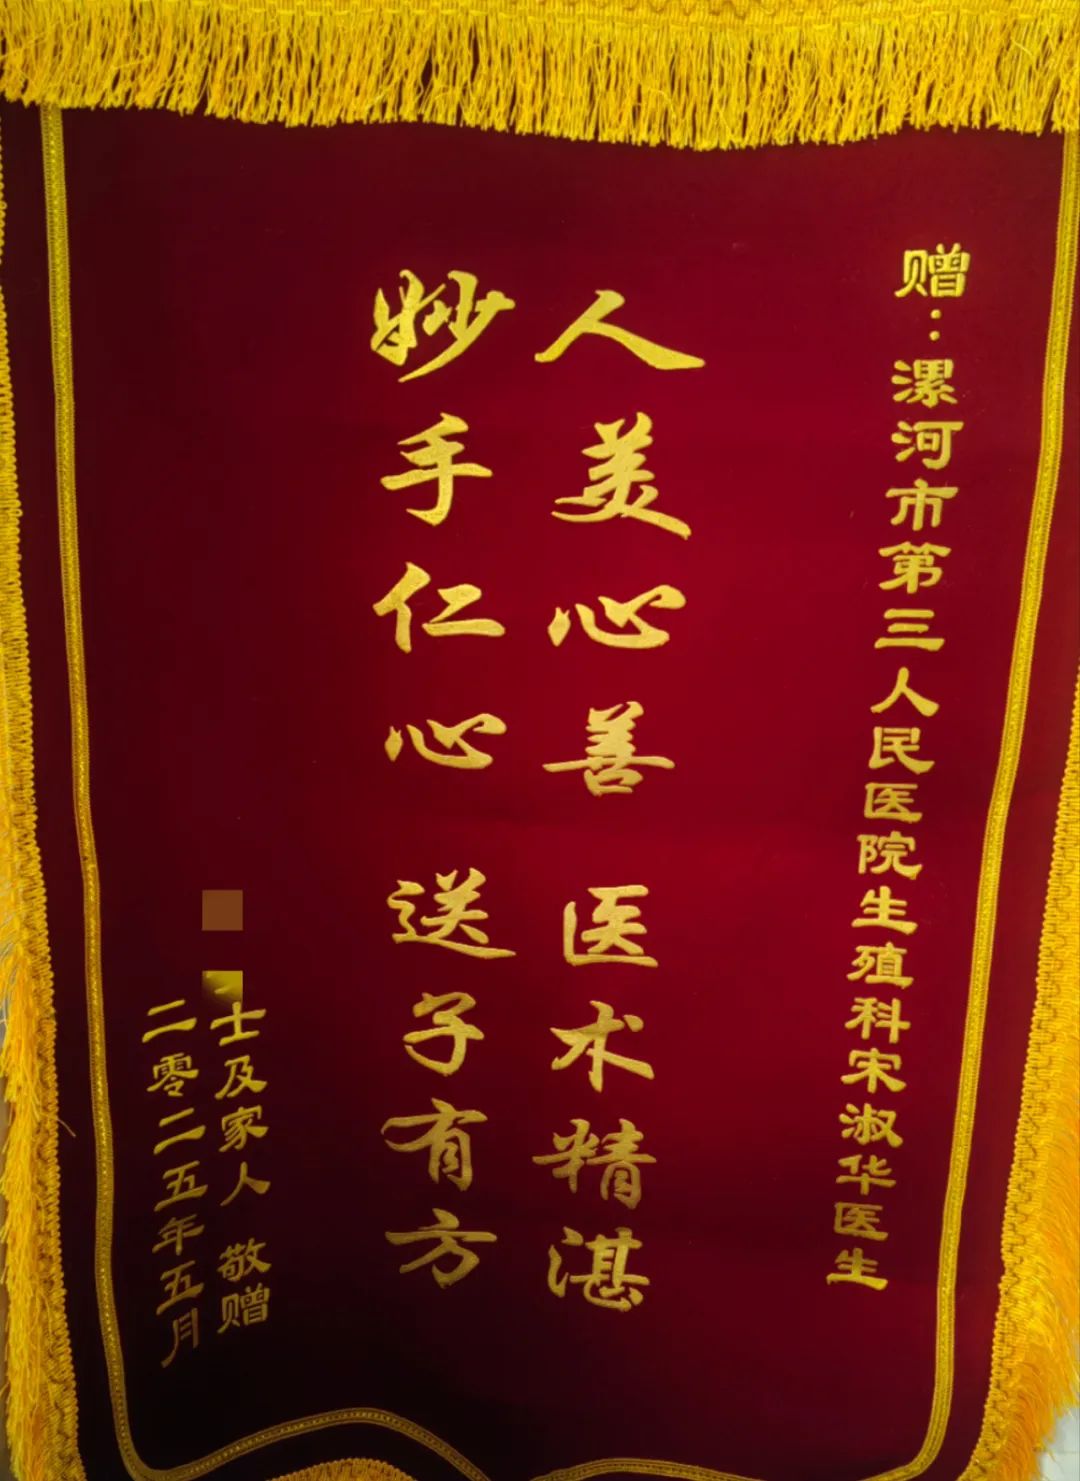 赠:漯河市第三人民医院生殖科宋淑华医生
人美心善 医术精湛
妙手仁心 送子有方
士及家人 敬赠
二零二五年五月